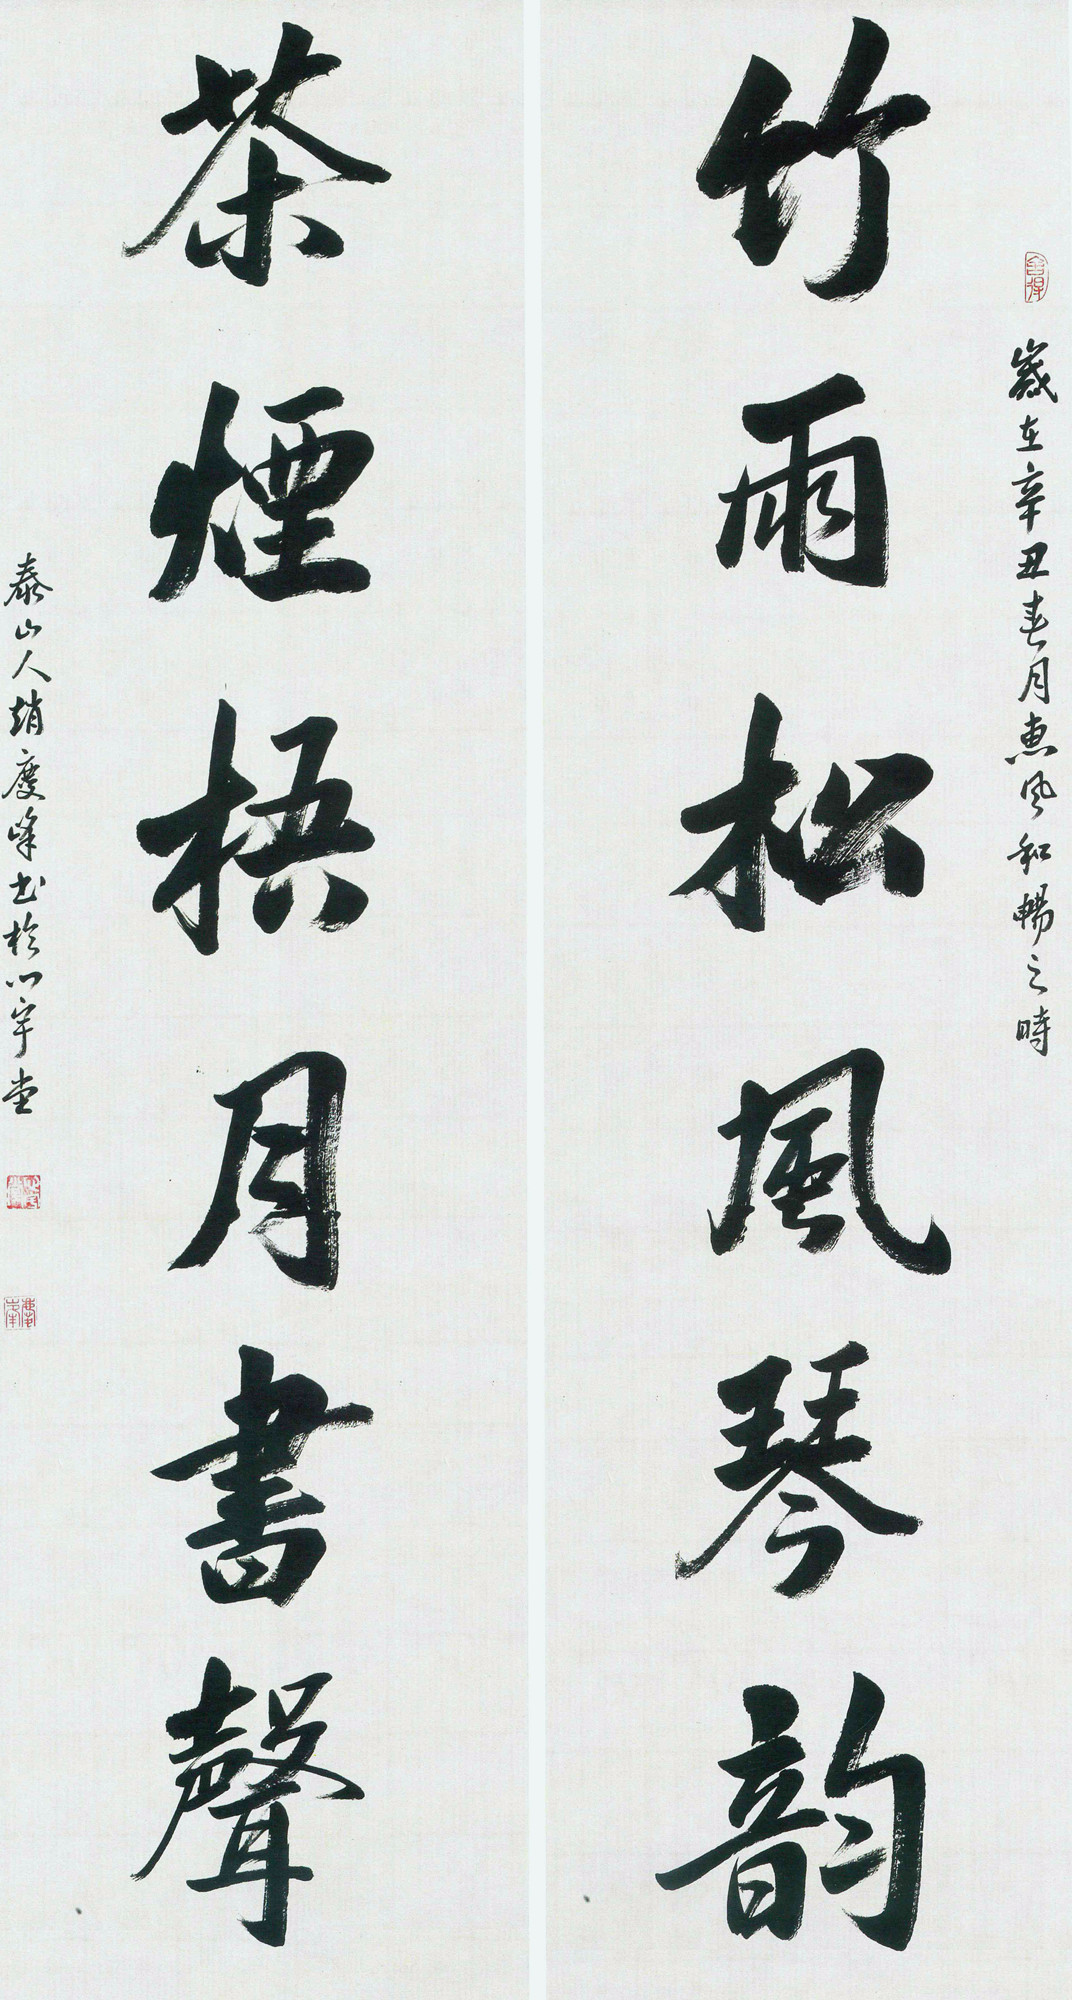 舍得
歲在辛丑春月惠風和暢之時
竹雨松風琴韵
茶煙梧月書聲
泰山人趙慶峰書於心宇堂